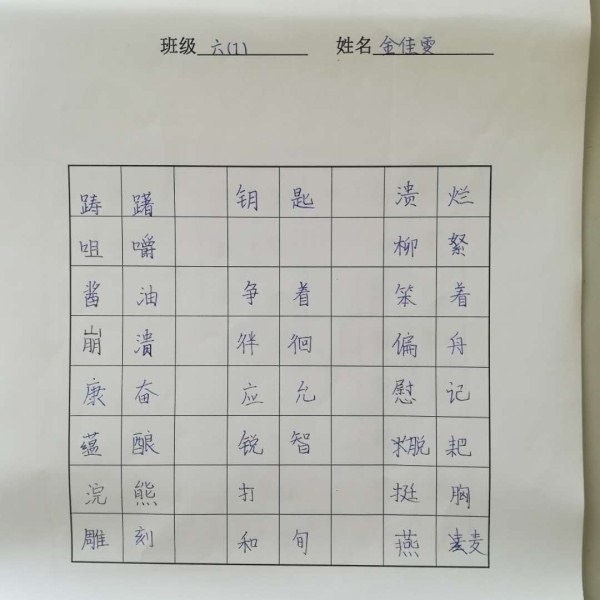 班级 六(1) 姓名 金佳雯
踌 躇 钥 匙 溃 烂
咀 嚼 柳 絮
酱 油 争 着 笨 着
崩 溃 徘 徊 偏 舟
康 奋 应 允 慰 记
蕴 酿 锐 智 脱 耙
浣 熊 打 挺 胸
雕 刻 和 旬 燕 麦